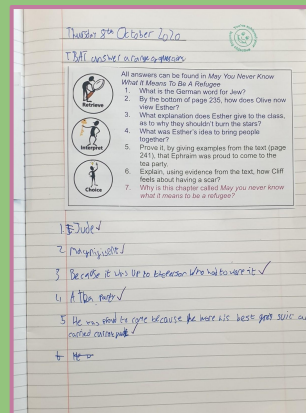 Thursday 8th October 2020
TBAT answer a range of questions
All answers can be found in May You Never Know
What It Means To Be A Refugee
1. What is the German word for Jew?
2. By the bottom of page 235, how does Olive now
view Esther?
3. What explanation does Esther give to the class,
as to why they shouldn't burn the stars?
4. What was Esther's idea to bring people
together?
5. Prove it, by giving examples from the text (page
241), that Ephraim was proud to come to the
tea party.
6. Explain, using evidence from the text, how Cliff
feels about having a scar?
7. Why is this chapter called May you never know
what it means to be a refugee?
Retrieve
Interpret
Choice
1. Jude
2 Magnificent
3 Because it was up to the person who had to wear it
4 A tea party
5 He was proud to come because he wore his best suit
carried
6